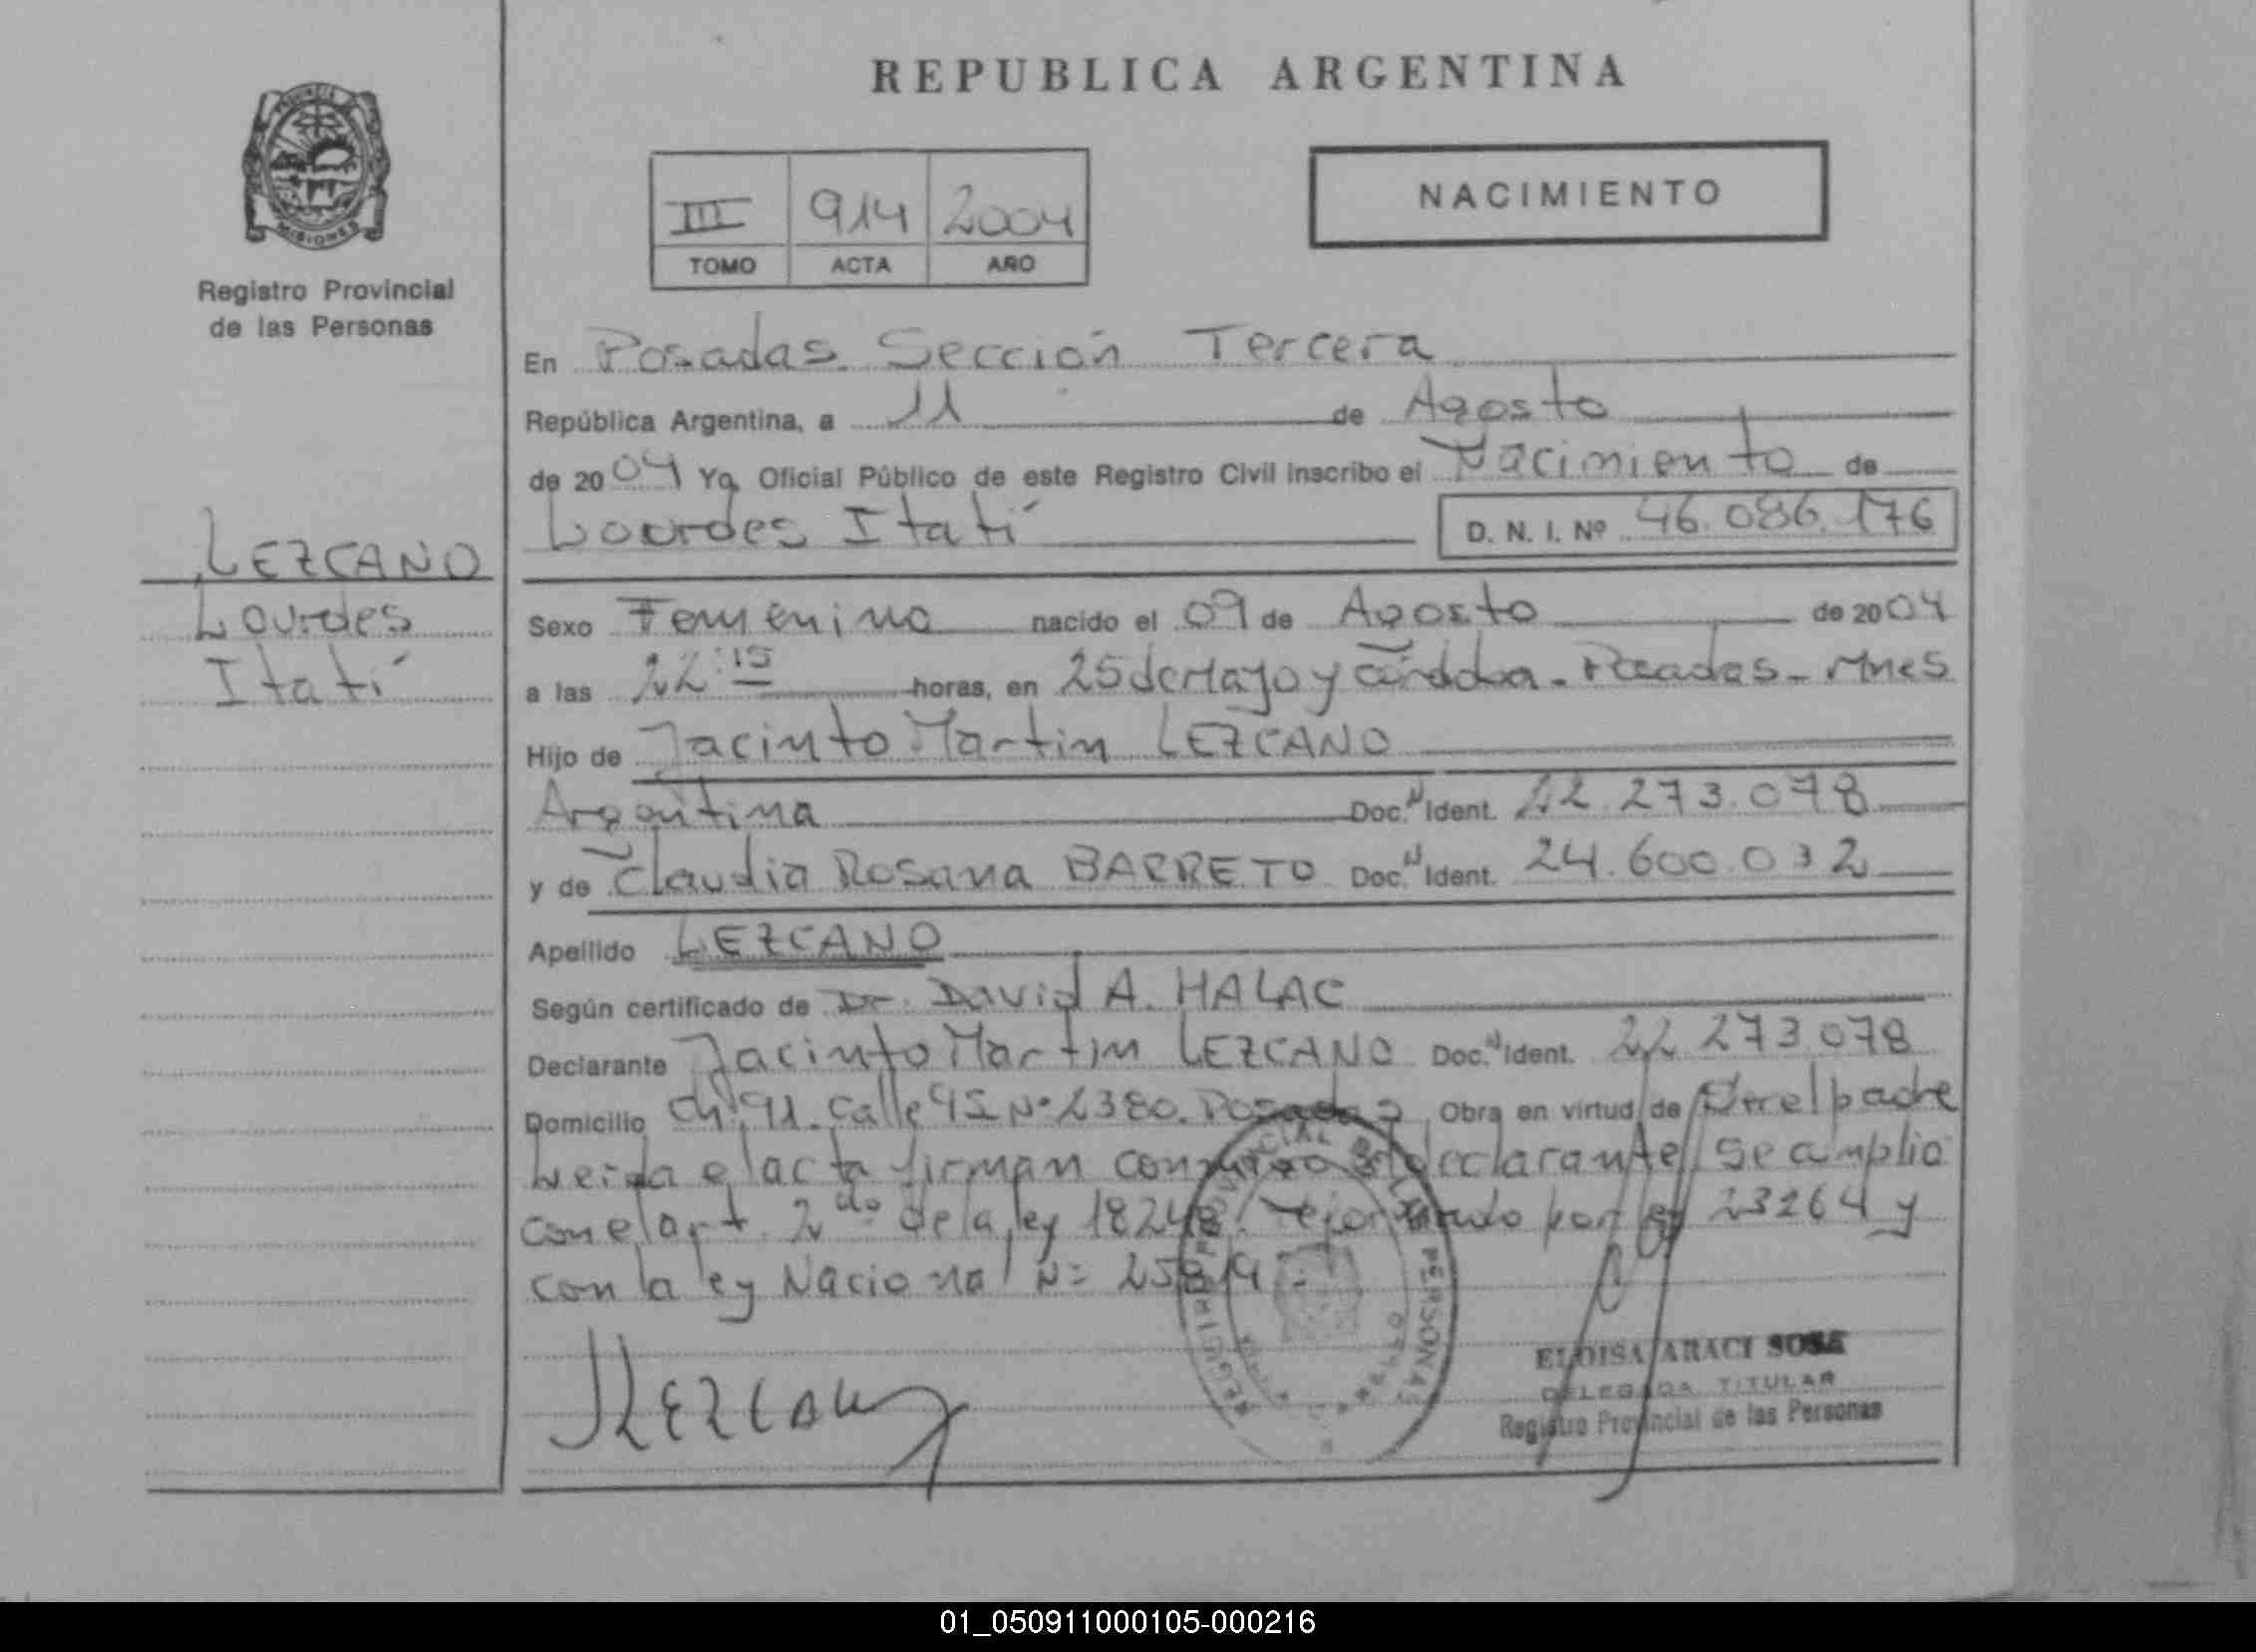 REPUBLICA ARGENTINA
PROVINCIA DE
MISIONES
Registro Provincial
de las Personas
NACIMIENTO
III 914 2004
TOMO ACTA AÑO
En Posadas. Sección Tercera
República Argentina, a 11 de Agosto
de 2004 Yo, Oficial Público de este Registro Civil inscribo el Nacimiento de
Lourdes Itatí D. N. I. Nº 46.086.176
LEZCANO
Lourdes
Itatí
Sexo Femenino nacido el 09 de Agosto de 2004
a las 22:15 horas, en 25 de Mayo y Córdoba - Posadas - Mnes
Hijo de Jacinto Martin LEZCANO
Argentina Doc. N Ident. 22.273.078
y de Claudia Rosana BARRETO Doc. N Ident. 24.600.032
Apellido LEZCANO
Según certificado de Dr. David A. HALAC
Declarante Jacinto Martin LEZCANO Doc. N Ident. 22 273.078
Domicilio Ch. 91. Calle Nº 2380. Posadas Obra en virtud de el padre
Leida el acta firman conmigo el declarante // Se amplia
con el art. 2do de la ley 18248 reformado por ley 23264 y
con la ley Nacional Nº
LEZCANO
REGISTRO PROVINCIAL DE LAS PERSONAS
ELOISA ARACI SOSA
DELEGADA TITULAR
Registro Provincial de las Personas
01_050911000105-000216